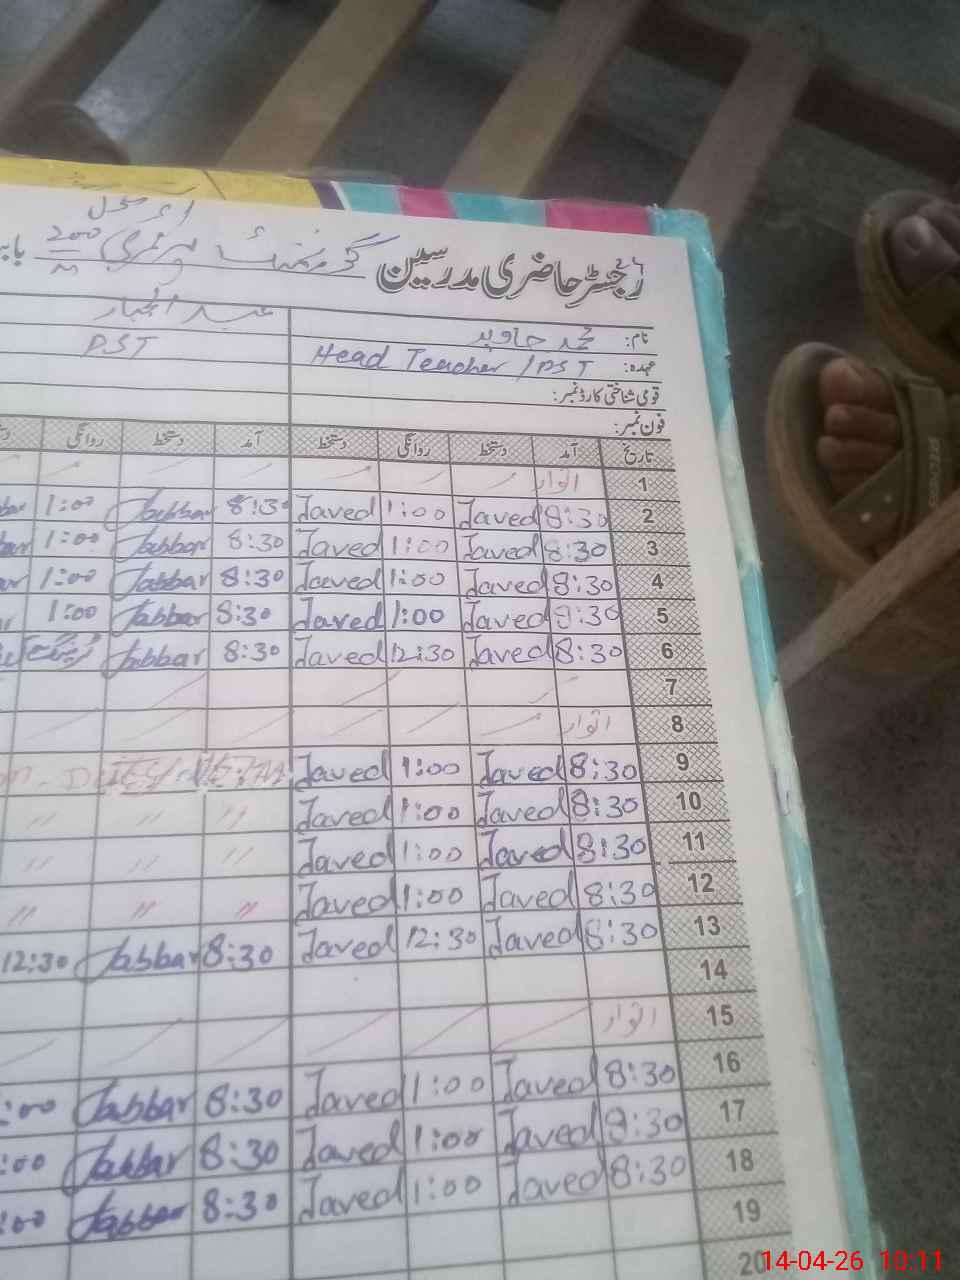 رجسٹر حاضری مدرسین گورنمنٹ پرائمری 200
نام: محمد جاوید عبدالجبار
عہدہ: Head Teacher / PST PST
قومی شناختی کارڈ نمبر:
فون نمبر:
تاریخ آمد دستخط روانگی دستخط آمد دستخط روانگی
1 اتوار
2 8:30 Javed 1:00 Javed 8:30 Jabbar 1:00
3 8:30 Javed 1:00 Javed 8:30 Jabbar 1:00
4 8:30 Javed 1:00 Javed 8:30 Jabbar 1:00
5 8:30 Javed 1:00 Javed 8:30 Jabbar 1:00
6 8:30 Javed 12:30 Javed 8:30 Jabbar
7
8 اتوار
9 8:30 Javed 1:00 Javed
10 8:30 Javed 1:00 Javed " " "
11 8:30 Javed 1:00 Javed " " "
12 8:30 Javed 1:00 Javed " " "
13 8:30 Javed 12:30 Javed 8:30 Jabbar 12:30
14
15 اتوار
16 8:30 Javed 1:00 Javed 8:30 Jabbar :00
17 8:30 Javed 1:00 Javed 8:30 Jabbar :00
18 8:30 Javed 1:00 Javed 8:30 Jabbar :00
19
20
14-04-26 10:11